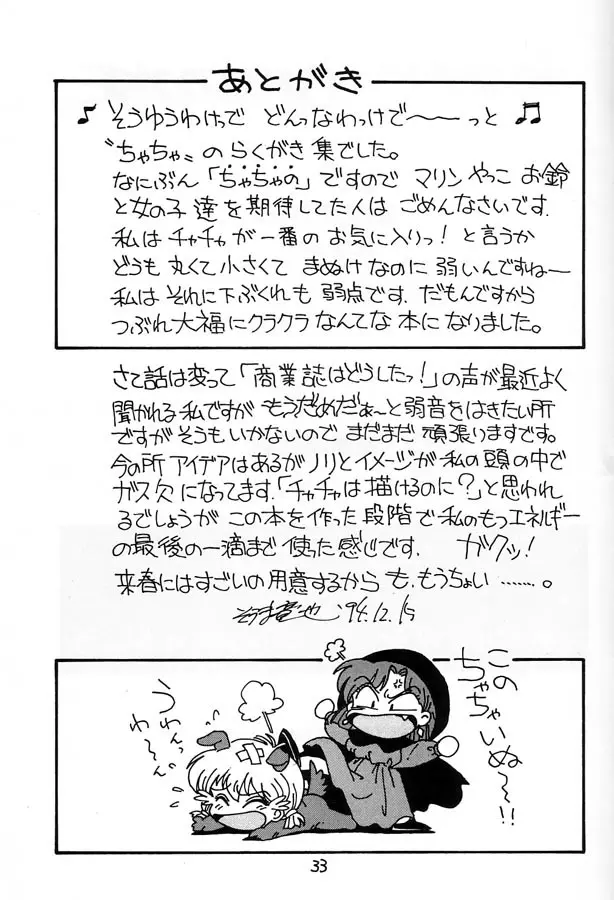 あとがき
♪ そうゆうわけっで どんっなわっけで〜〜〜っと ♫
〝ちゃちゃ〟のらくがき集でした。
なにぶん「ちゃちゃの」ですので マリン やっこ お鈴
と女の子達を期待してた人は ごめんなさいです.
私はチャチャが一番のお気に入りっ! と言うか
どうも丸くて小さくて まぬけなのに弱いんですね〜
私はそれに下ぶくれも弱点です. だもんですから
つぶれ大福にクラクラなんてな本になりました。
さて話は変って「商業誌はどうしたっ!」の声が最近よく
聞かれる私ですが もうだめだぁ〜と弱音をはきたい所
ですがそうもいかないので まだまだ頑張りますです。
今の所アイデアはあるがノリとイメージが私の頭の中で
ガス欠になってます.「チャチャは描けるのに?」と思われ
るでしょうが この本を作った段階で私のもつエネルギー
の最後の一滴まで使った感じです. ガクッ!
来春にはすごいの用意するから も、もうちょい‥‥‥。
'94.12.15
この
ちゃちゃいぬ〜〜!!
うわんっ
わ〜〜ん
33